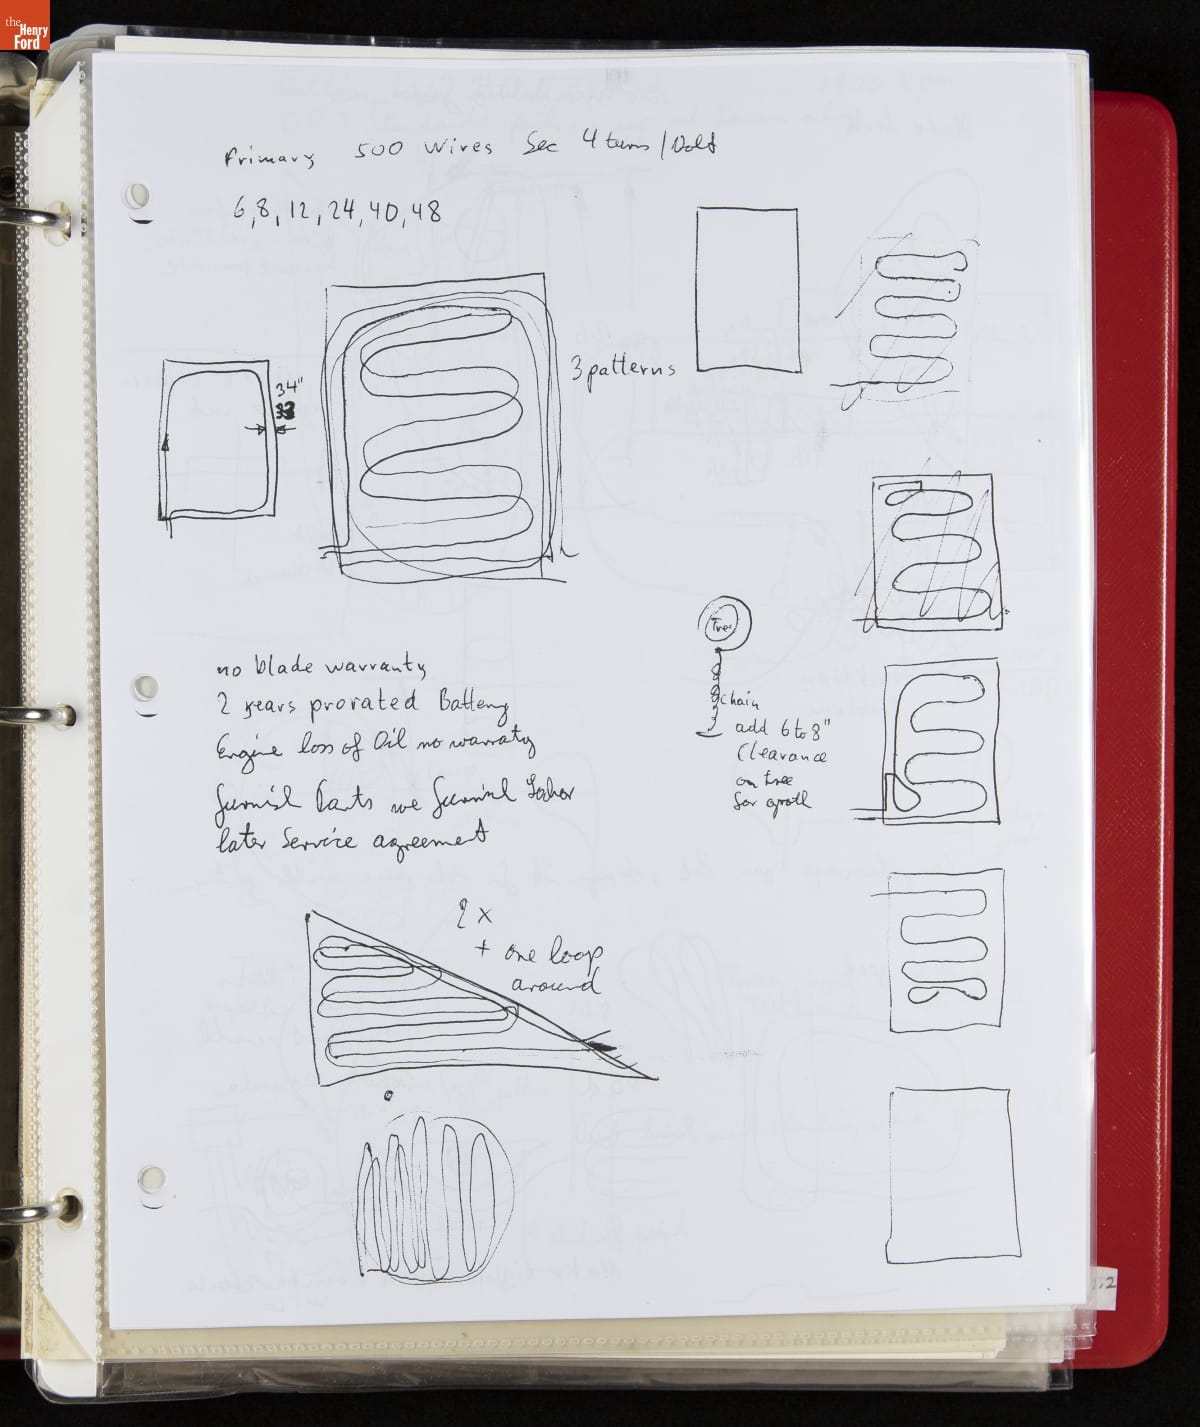 the
Henry
Ford
Primary 500 wires Sec 4 turns/Volt
6, 8, 12, 24, 40, 48
3 patterns
34"
Tree
chain
add 6 to 8"
Clearance
on tree
for groth
no blade warranty
2 years prorated Battery
Engine loss of Oil no warraty
furnish Parts we furnish
later Service agreement
2 x
+ one loop
around